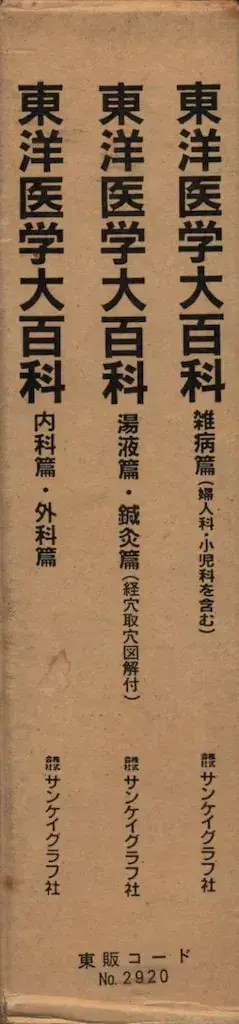 東洋医学大百科 雑病篇(婦人科・小児科を含む) 株式会社 サンケイグラフ社
東洋医学大百科 湯液篇・鍼灸篇(経穴取穴図解付) 株式会社 サンケイグラフ社
東洋医学大百科 内科篇・外科篇 株式会社 サンケイグラフ社
東販コード
No.2920